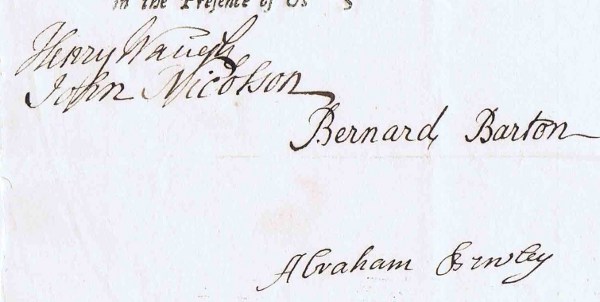 in the Presence of Us
Henry Waugh
John Nicolson
Bernard Barton
Abraham